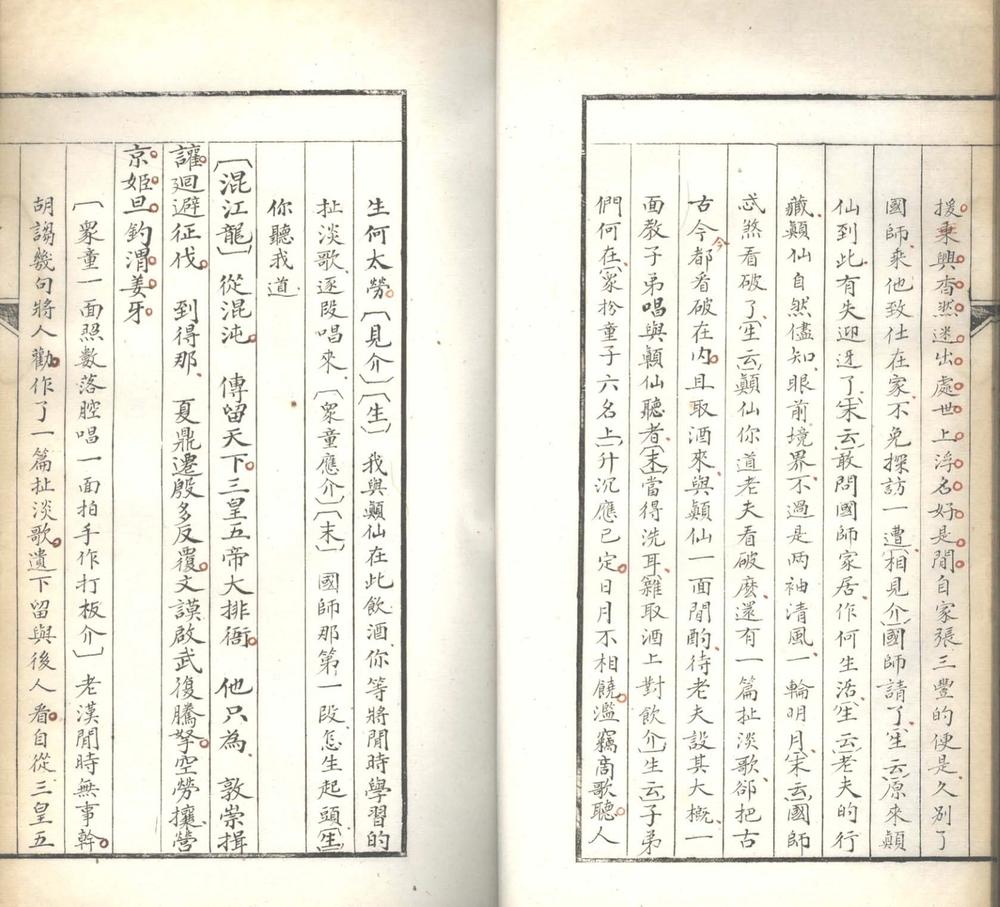 援乘興杳然迷出處世上浮名好是閒自家張三豐的便是久別了
國師乘他致仕在家不免探訪一遭〔相見介〕國師請了〔生云〕原來顛
仙到此有失迎迓了〔末云〕敢問國師家居作何生活〔生云〕老夫的行
藏顛仙自然儘知眼前境界不過是两袖清風一輪明月〔末云〕國師
忒煞看破了〔生云〕顛仙你道老夫看破麽還有一篇扯淡歌郤把古
古今都看破在内且取酒來與顛仙一面閒酌待老夫設其大概一
面教子弟唱與顛仙聽者〔末〕當得洗耳〔雜取酒上對飲介〕生云〕子弟
們何在〔衆扮童子六名上〕升沉應已定日月不相饒濫竊商歌聽人
生何太勞〔見介〕〔生〕我與顛仙在此飲酒你等將閒時學習的
扯淡歌逐段唱來〔衆童應介〕〔末〕國師那第一段怎生起頭〔生〕
你聽我道
〔混江龍〕從混沌 傳留天下三皇五帝大排衙 他只為 敦崇揖
讓廻避征伐 到得那 夏鼎遷殷多反覆文謨啟武復騰拏空勞攘營
京姬旦釣渭姜牙
〔衆童一面照數落腔唱一面拍手作打板介〕老漢閒時無事幹
胡謅幾句將人勸作了一篇扯淡歌遺下留與後人看自從三皇五